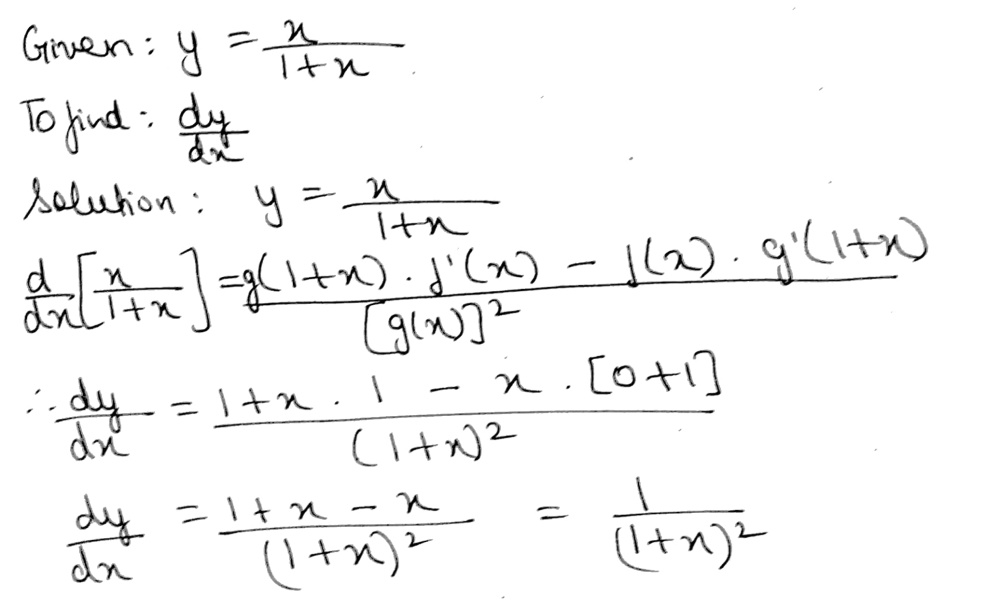 Given: y = x/(1+x)
To find: dy/dx
Solution: y = x/(1+x)
d/dx [x/(1+x)] = (g(1+x) . f'(x) - f(x) . g'(1+x))/[g(x)]²
∴ dy/dx = (1+x . 1 - x . [0+1])/(1+x)²
dy/dx = (1+x-x)/(1+x)² = 1/(1+x)²